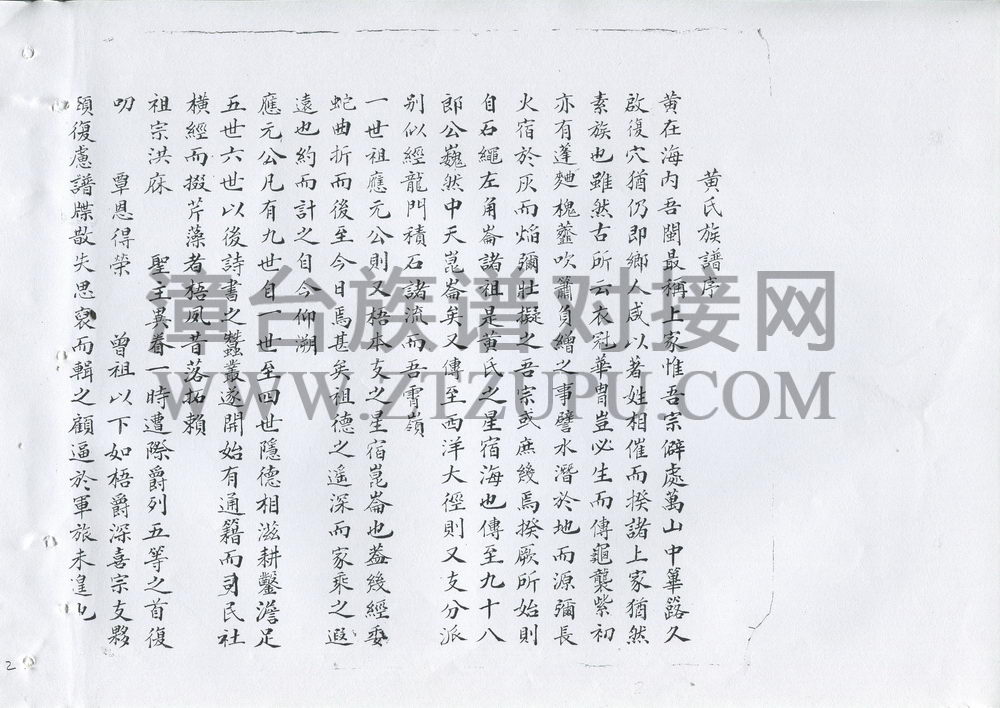 黄氏族譜序
黄在海内吾閩最稱上家惟吾宗僻處萬山中篳路久
啟復穴猶仍即鄉人咸以著姓相催而揆諸上家猶然
素族也雖然古所云衣冠華胄豈必生而傳龜襲紫初
亦有蓬麯槐虀吹簫負繒之事譬水潛於地而源彌長
火宿於灰而焰彌壯擬之吾宗或庶幾焉揆厥所始則
自石繩左角崙諸祖是黄氏之星宿海也傳至九十八
郎公巍然中天崑崙矣又傳至西洋大徑則又支分派
别似經龍門積石諸流而吾霄嶺
一世祖應元公則又梧本支之星宿崑崙也蓋幾經委
蛇曲折而後至今日焉甚矣祖德之遥深而家乘之遐
遠也約而計之自今仰溯
應元公凡有九世自一世至四世隱德相滋耕鑿澹足
五世六世以後詩書之蠶叢遂開始有通籍而司民社
橫經而掇芹藻者梧夙昔落拓賴
祖宗洪庥 聖主異眷一時遭際爵列五等之首復
叨 覃恩得榮 曾祖以下如梧爵深喜宗支夥
頤復慮譜牒散失思裒而輯之顧逼於軍旅未遑也
2
漳台族谱对接网
WWW.ZTZUPU.COM